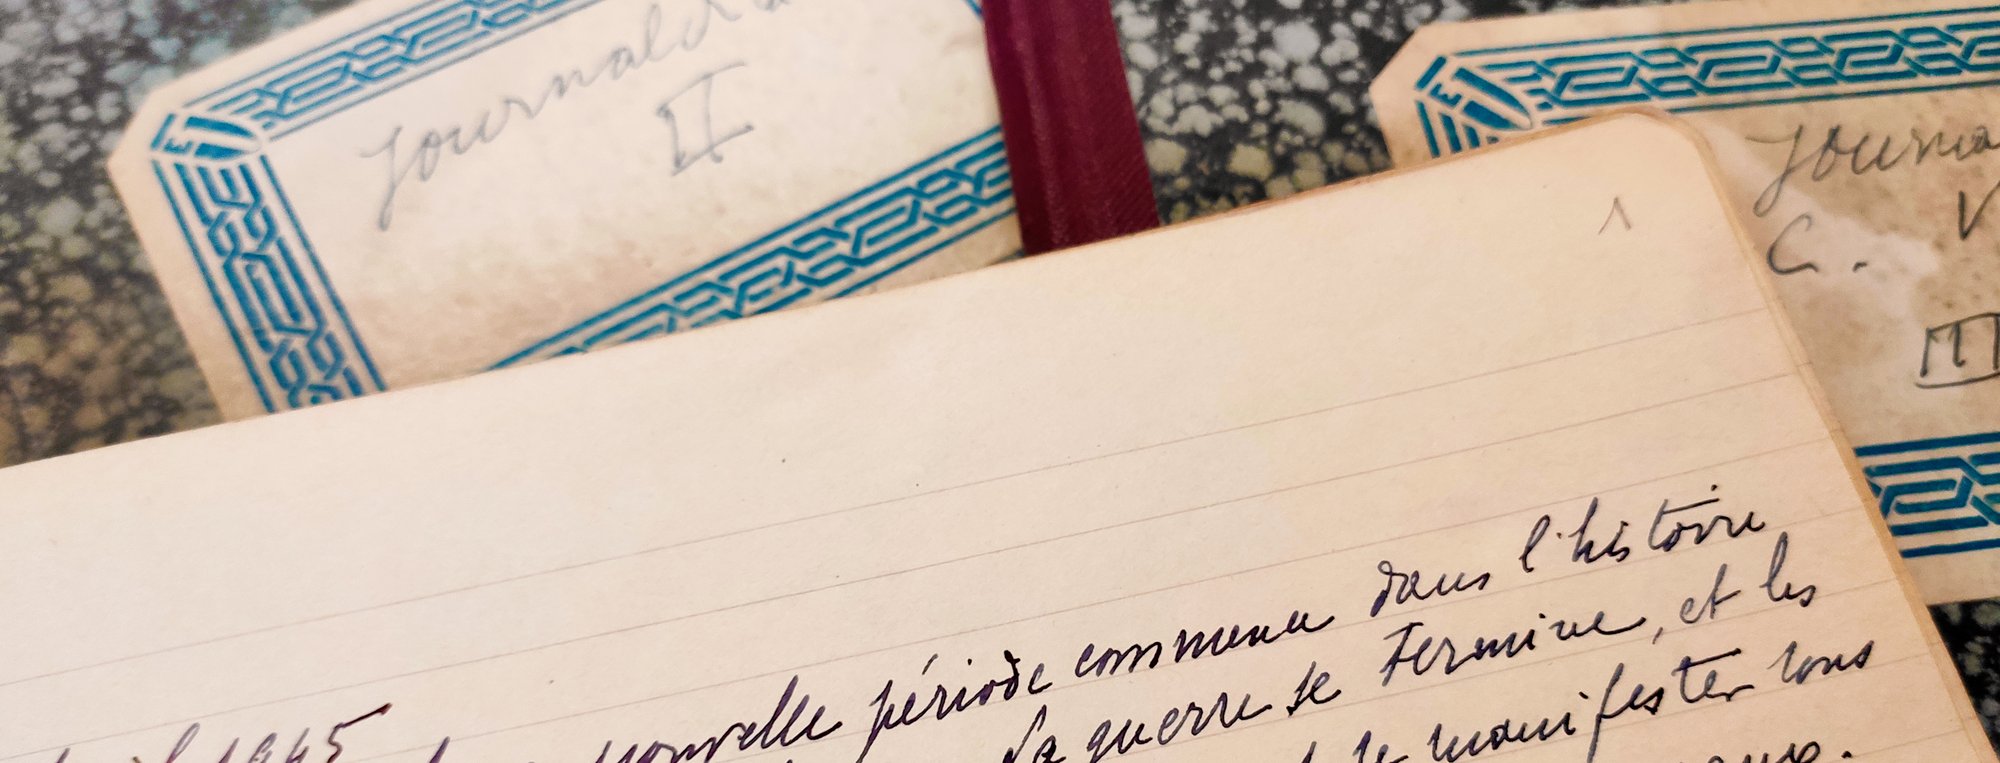 Journal
II
Journa
C. V
III
1
1945 nouvelle période commence dans l'histoire
La guerre se termine, et les
se manifester sous